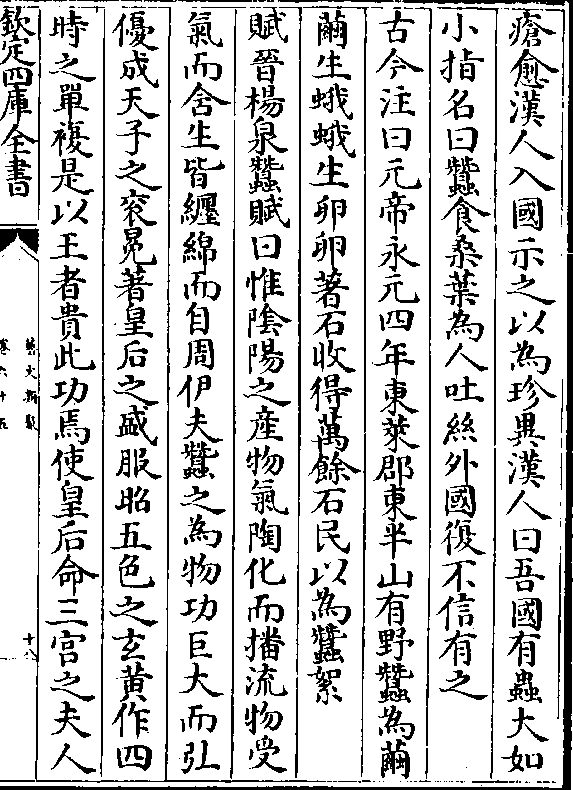 瘡愈漢人入國示之以為珍異漢人曰吾國有蟲大如
小指名曰蠶食桑葉為人吐絲外國復不信有之
古今注曰元帝永元四年東萊郡東半山有野蠶為繭
繭生蛾蛾生卵卵著石收得萬餘石民以為蠶絮
賦晉楊泉蠶賦曰惟陰陽之産物氣陶化而播流物受
氣而含生皆纒綿而自周伊夫蠶之為物功巨大而弘
優成天子之衮冕著皇后之盛服昭五色之玄黄作四
時之單複是以王者貴此功焉使皇后命三宫之夫人
欽定四庫全書
藝文類聚
卷六十五
十八